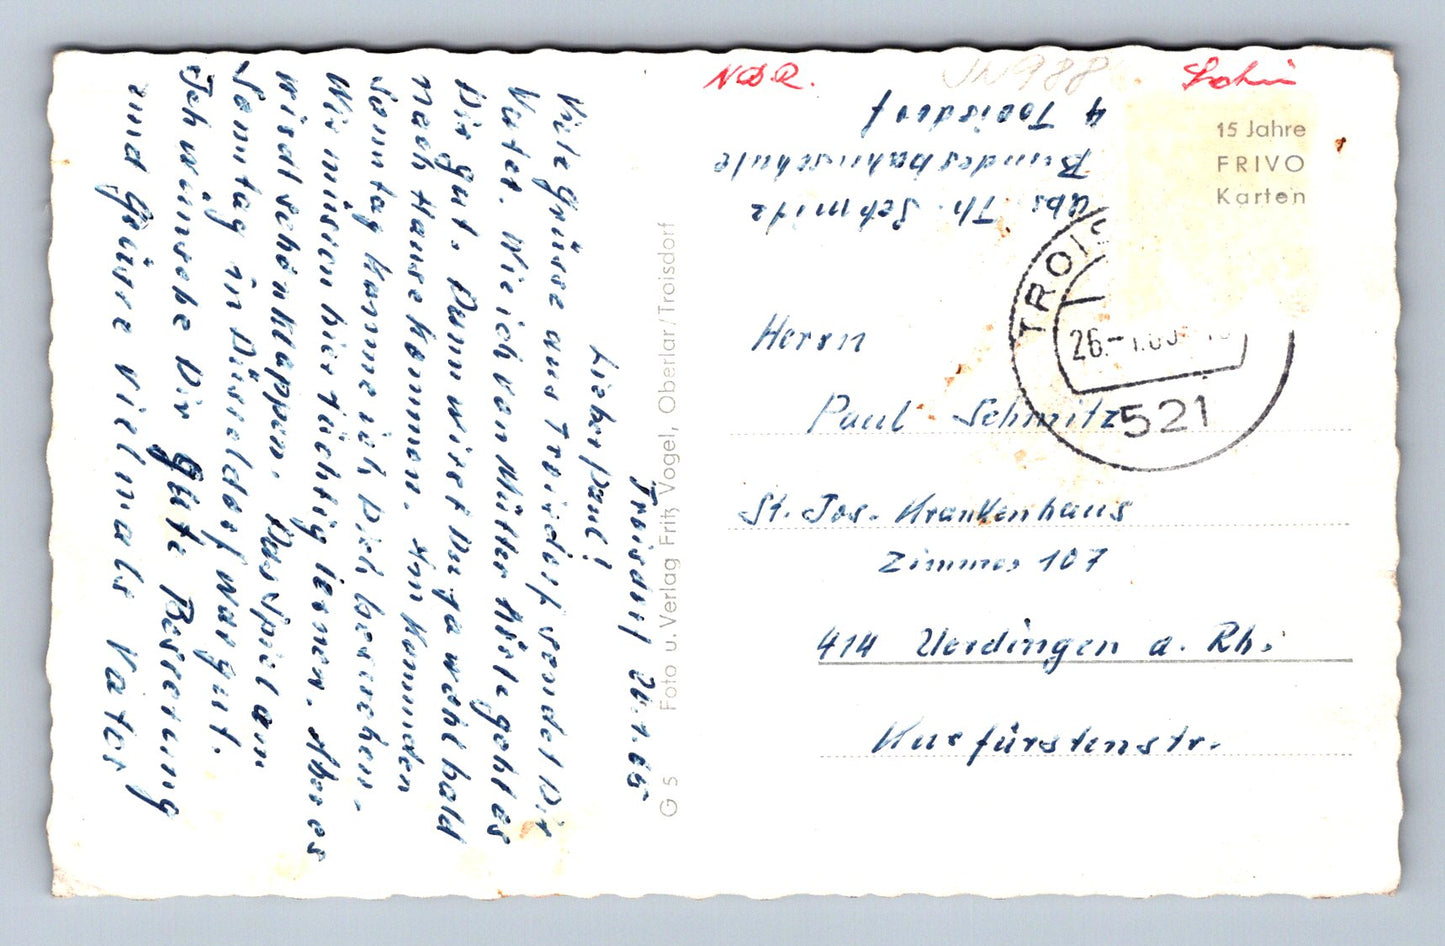 Troisdorf 26.1.65
Lieber Paul!
Viele Grüsse aus Troisdorf sendet Dir
Vater. Wie ich von Mutter höre geht es
Dir gut. Dann wirst Du ja wohl bald
nach Hause kommen. Am kommenden
Sonntag komme ich Dich besuchen.
Wir müssen hier tüchtig lernen. Aber es
wird schön klappen. Das Spiel am
Sonntag in Düsseldorf war gut.
Ich wünsche Dir gute Besserung
und grüsse vielmals Vater
G 5 Foto u. Verlag Fritz Vogel, Oberlar/Troisdorf
NDR.
JN988
15 Jahre
FRIVO
Karten
Abs. Th. Schmitz
Bundesbahnschule
4 Troisdorf
TROIS
26.-1.65
521
Herrn
Paul Schmitz
St. Jos. Krankenhaus
Zimmer 107
414 Uerdingen a. Rh.
Kurfürstenstr.